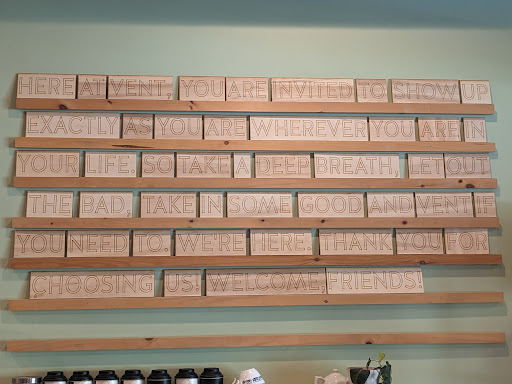 HERE AT VENT, YOU ARE INVITED TO SHOW UP
EXACTLY AS YOU ARE WHEREVER YOU ARE IN
YOUR LIFE. SO TAKE A DEEP BREATH, LET OUT
THE BAD, TAKE IN SOME GOOD AND VENT IF
YOU NEED TO. WE'RE HERE. THANK YOU FOR
CHOOSING US! WELCOME, FRIENDS!